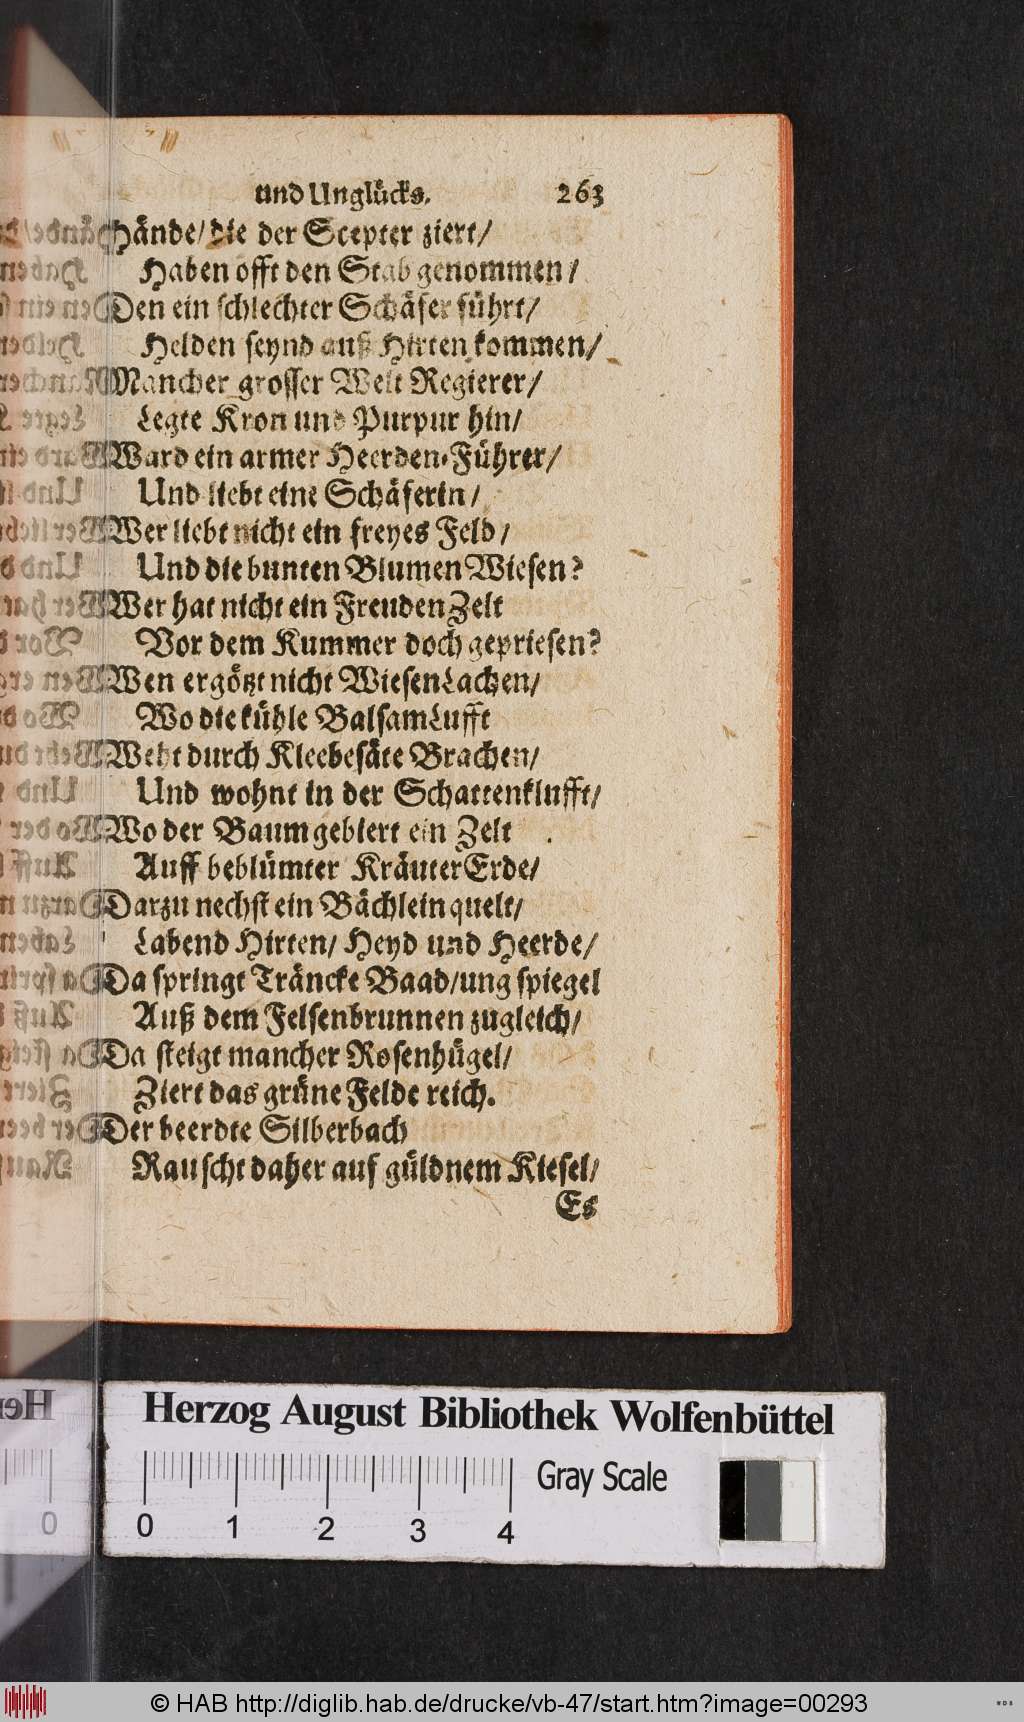 und Unglücks. 263
Hände/ die der Scepter ziert/
Haben offt den Stab genommen/
Den ein schlechter Schäfer führt/
Helden seynd auß Hirten kommen/
Mancher grosser Welt Regierer/
Legte Kron und Purpur hin/
Ward ein armer Heerden-Führer/
Und liebt eine Schäferin/
Wer liebt nicht ein freyes Feld/
Und die bunten Blumen Wiesen?
Wer hat nicht ein Freuden Zelt
Vor dem Kummer doch gepriesen?
Wen ergötzt nicht Wiesen Lachen/
Wo die kühle Balsam Lufft
Weht durch Kleebesäte Brachen/
Und wohnt in der Schattenklufft/
Wo der Baum gebiert ein Zelt
Auff beblümter Kräuter Erde/
Darzu nechst ein Bächlein quelt/
Labend Hirten/ Heyd und Heerde/
Da springt Träncke Baad/ ung spiegel
Auß dem Felsenbrunnen zugleich/
Da steigt mancher Rosenhügel/
Ziert das grüne Felde reich.
Der beerdte Silberbach
Rauscht daher auf güldnem Kiesel/
Es
Herzog August Bibliothek Wolfenbüttel
Gray Scale
0 1 2 3 4
© HAB http://diglib.hab.de/drucke/vb-47/start.htm?image=00293